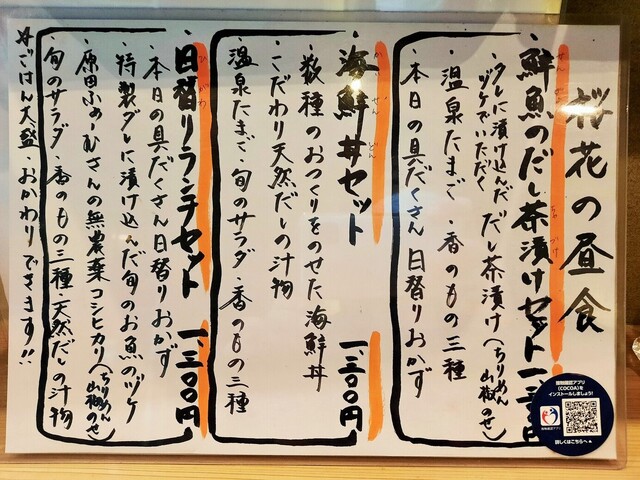 桜花の昼食
鮮魚のだし茶漬けセット 一、三〇〇円
・タレに漬け込んだ だし茶漬け(ちりめん山椒のせ)
ヅケでいただく
・温泉たまご ・香のもの三種
・本日の具だくさん日替りおかず
・海鮮丼セット 一、三〇〇円
かいせんどん
・数種のおつくりをのせた海鮮丼
・こだわり天然だしの汁物
・温泉たまご・旬のサラダ・香のもの三種
・日替りランチセット 一、三〇〇円
ひがわ
・本日の具だくさん日替りおかず
・特製ダレに漬け込んだ旬のお魚のヅケ
・原田ふぁーむさんの無農薬コシヒカリ(ちりめん山椒のせ)
・旬のサラダ・香のもの三種・天然だしの汁物
※ごはん大盛・おかわりできます!!
接触確認アプリ
(COCOA)を
インストールしましょう!
接触確認アプリ
詳しくはこちらへ▲